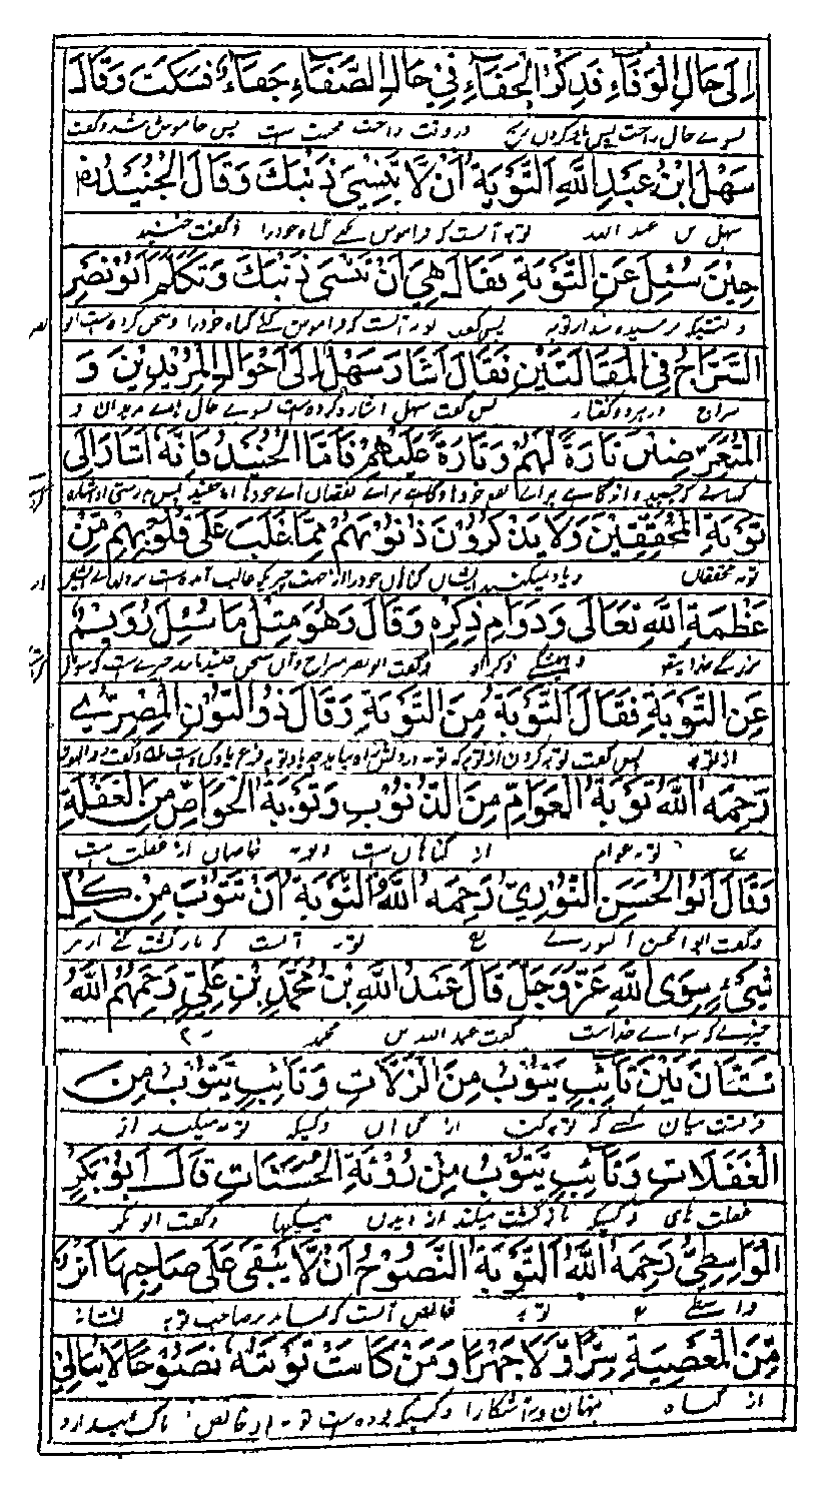 اِلَى حَالِ الْوَفَاءِ فَذِكْرُ الْجَفَاءِ فِي حَالِ الصَّفَاءِ جَفَاءٌ فَسَكَتَ وَقَالَ
سوے حال راحت پس یاد کردن رنج در وقت راحت محنت ست پس خاموش شد وگفت
سَهْلُ ابْنُ عَبْدِ اللّٰهِ اَلتَّوْبَةُ اَنْ لَّا تَنْسٰى ذَنْبَكَ وَقَالَ الْجُنَيْدُ
سہل بن عبد اللہ توبہ آنست کہ فراموش نکنی گناہ خود را وگفت جنید
حِيْنَ سُئِلَ عَنِ التَّوْبَةِ فَقَالَ هِيَ اَنْ تَنْسٰى ذَنْبَكَ وَتَكَلَّمَ اَبُوْ نَصْرِ
وقتیکہ پرسیدہ شد از توبہ پس گفت توبہ آنست کہ فراموش کنی گناہ خود را وسخن کردہ ست ابو نصر
السَّرَّاجُ فِي الْمَقَالَتَيْنِ فَقَالَ اَشَارَ سَهْلٌ اِلٰى اَحْوَالِ الْمُرِيْدِيْنَ وَ
سراج در ہر دو گفتار پس گفت سہل اشارہ کردہ ست سوے حال ہاے مریدان و
الْمُتَعَرِّضِيْنَ تَارَةً لَهُمْ وَتَارَةً عَلَيْهِمْ فَاَمَّا الْجُنَيْدُ فَاِنَّهٗ اَشَارَ اِلٰى
تَوْبَةِ الْمُحَقِّقِيْنَ وَلَا يَذْكُرُوْنَ ذُنُوْبَهُمْ مِمَّا غَلَبَ عَلٰى قُلُوْبِهِمْ مِّنْ
توبہ محققان ویاد نمیکنند ایشان گناہان خود را از جہت
عَظْمَةِ اللّٰهِ تَعَالٰى وَدَوَامِ ذِكْرِهٖ وَقَالَ وَهُوَ مِثْلُ مَا سُئِلَ رُوَيْمٌ
بزرگی خدایتعالی وہمیشگی ذکر او وگفت ابو نصر سراج
عَنِ التَّوْبَةِ فَقَالَ اَلتَّوْبَةُ مِنَ التَّوْبَةِ وَقَالَ ذُو النُّوْنِ الْمِصْرِيُّ
از توبہ پس گفت توبہ کردن از توبہ
رَحِمَهُ اللّٰهُ تَوْبَةُ الْعَوَامِّ مِنَ الذُّنُوْبِ وَتَوْبَةُ الْخَوَاصِّ مِنَ الْغَفْلَةِ
توبہ عوام از گناہان ست وتوبہ خاصان از غفلت ست
وَقَالَ اَبُو الْحَسَنِ النُّوْرِيُّ رَحِمَهُ اللّٰهُ اَلتَّوْبَةُ اَنْ تَتُوْبَ مِنْ كُلِّ
وگفت ابو الحسن النورے توبہ آنست کہ بازگشت کنی از ہر
شَيْءٍ سِوَى اللّٰهِ عَزَّ وَجَلَّ قَالَ عَبْدُ اللّٰهِ بْنُ مُحَمَّدِ بْنِ عَلِيٍّ رَحِمَهُمُ اللّٰهُ
چیزے کہ سواے خداست گفت عبد اللہ بن محمد
شَتَّانَ بَيْنَ تَائِبٍ يَتُوْبُ مِنَ الزَّلَّاتِ وَتَائِبٍ يَتُوْبُ مِنَ
فرقست میان کسے کہ توبہ کند از وکسیکہ توبہ میکند از
الْغَفَلَاتِ وَتَائِبٍ يَتُوْبُ مِنْ رُؤْيَةِ الْحَسَنَاتِ قَالَ اَبُوْ بَكْرِ
غفلت ہای وکسیکہ بازگشت میکند از دیدن نیکیہا وگفت ابو بکر
الْوَاسِطِيُّ رَحِمَهُ اللّٰهُ اَلتَّوْبَةُ النَّصُوْحُ اَنْ لَّا يَبْقٰى عَلٰى صَاحِبِهَا اَثَرٌ
واسطے توبہ خالص آنست کہ نماند بر صاحب توبہ نشان
مِّنَ الْمَعْصِيَةِ سِرًّا وَّلَا جَهْرًا وَمَنْ كَانَتْ تَوْبَتُهٗ نَصُوْحًا لَا يُبَالِيْ
از گناہ پنہان ونہ آشکارا وکسیکہ بودہ ست توبہ او خالص باک نمیدارد